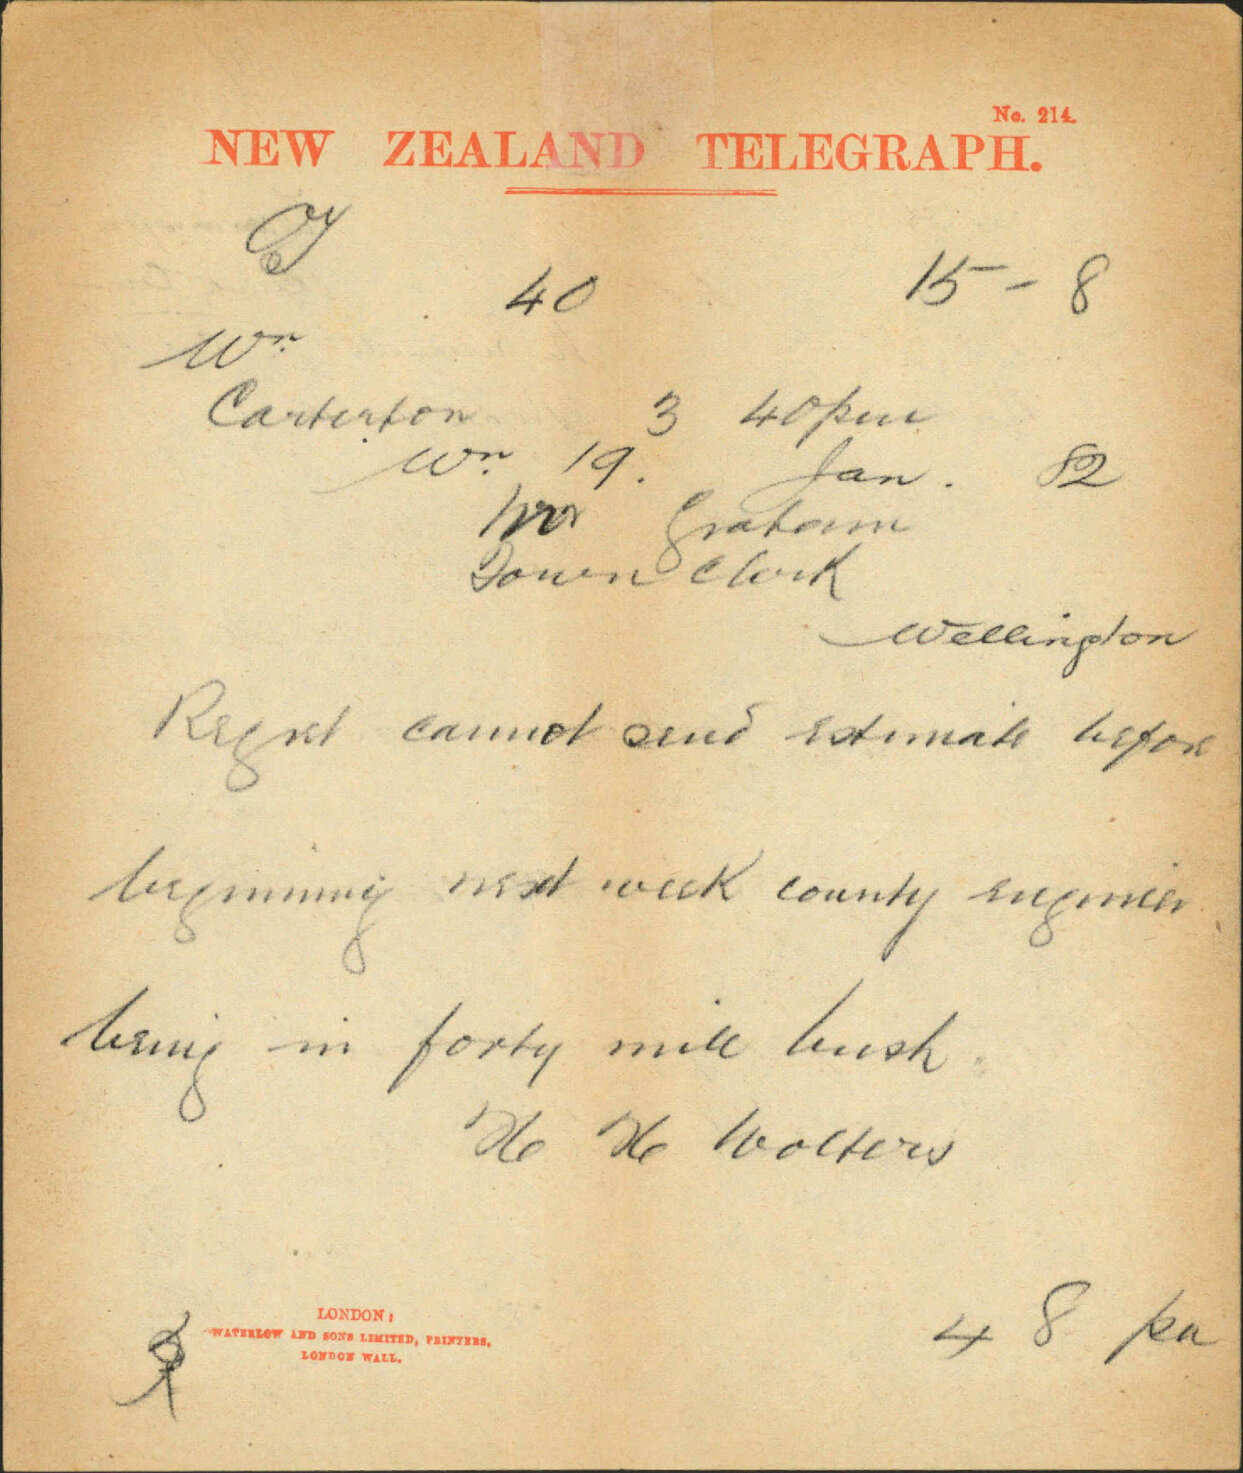 No. 214.
NEW ZEALAND TELEGRAPH.
40 15 - 8
Wn
Carterton 3 40pm
Wn 19. Jan. 82
Mr Graham
Town Clerk
Wellington
Regret cannot send estimate before
beginning next week county engineer
being in forty mile bush
H H Wolters
LONDON:
WATERLOW AND SONS LIMITED, PRINTERS,
LONDON WALL.
4 8 pm